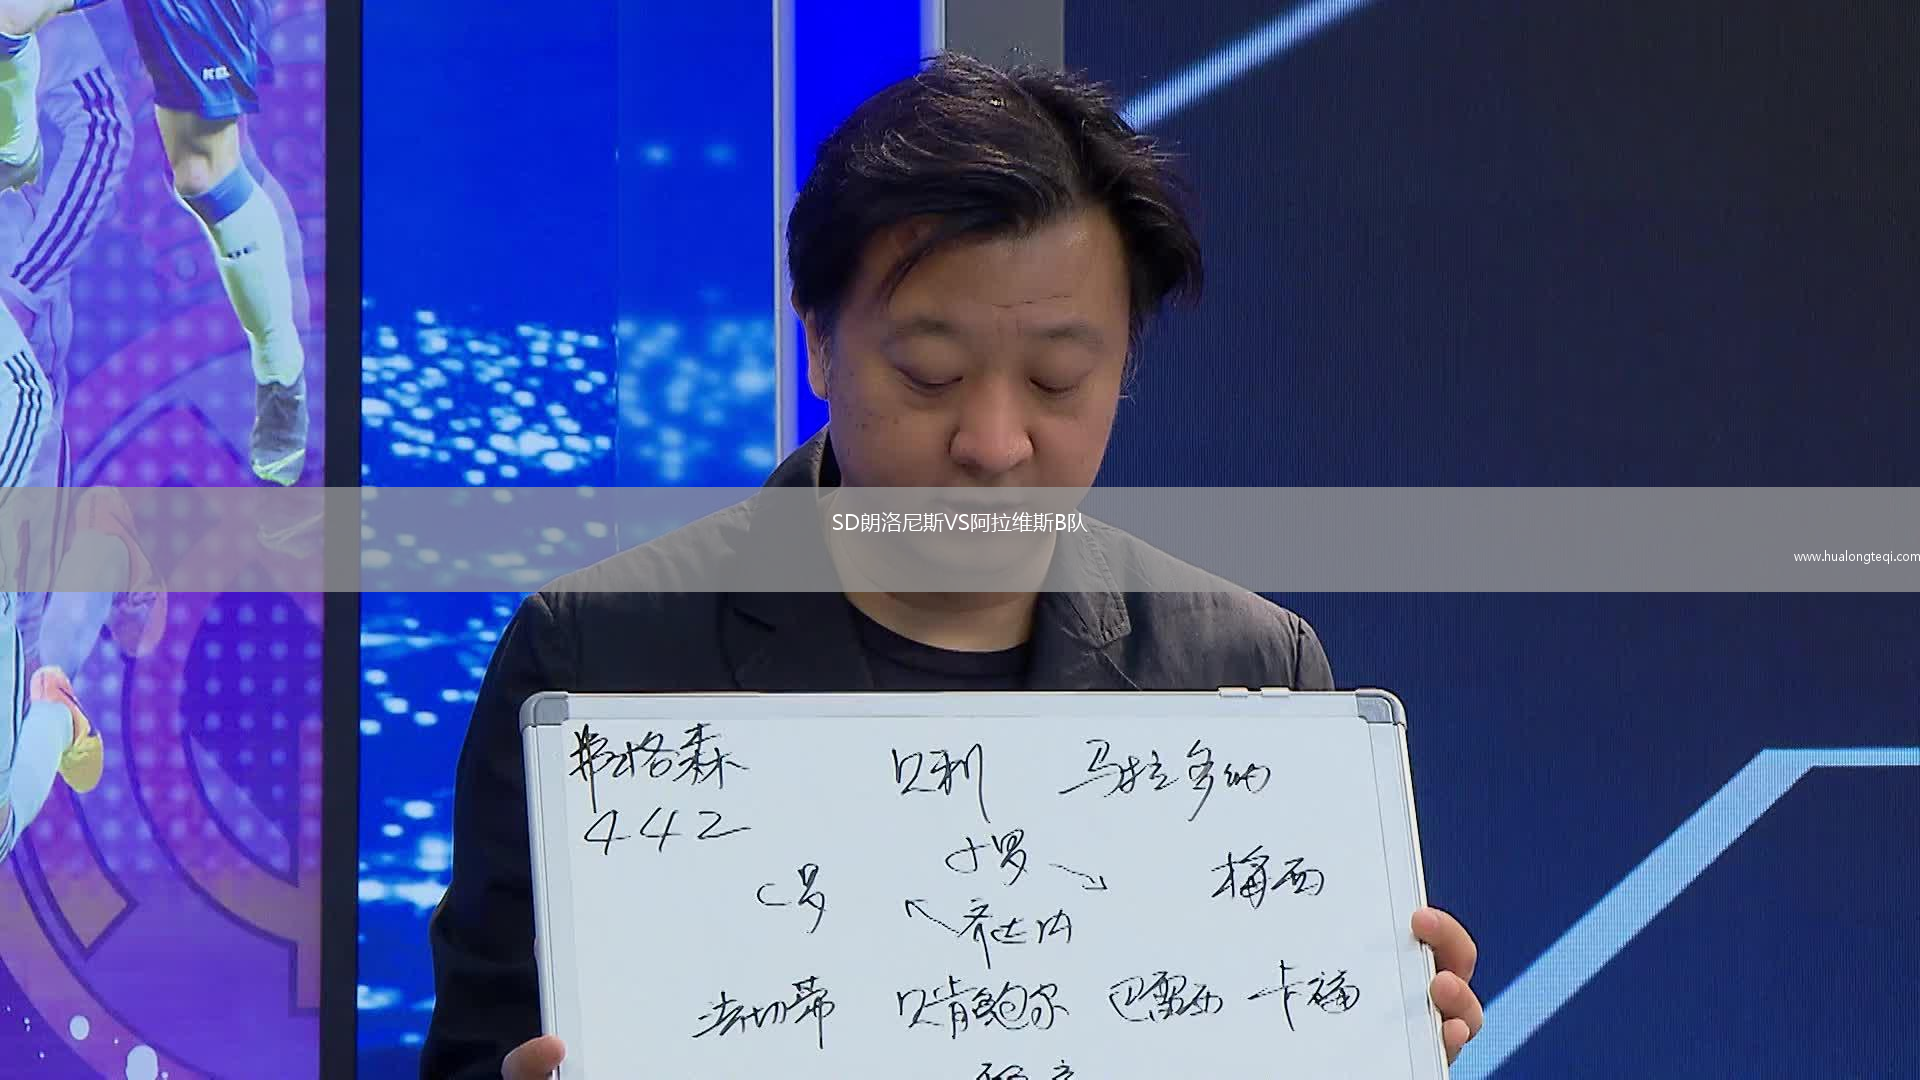 SD朗洛尼斯VS阿拉维斯B队
www.hualongteqi.com
弗格森 贝利 马拉多纳
442
小罗
C罗 梅西
齐达内
法切蒂 贝肯鲍尔 巴雷西 卡福